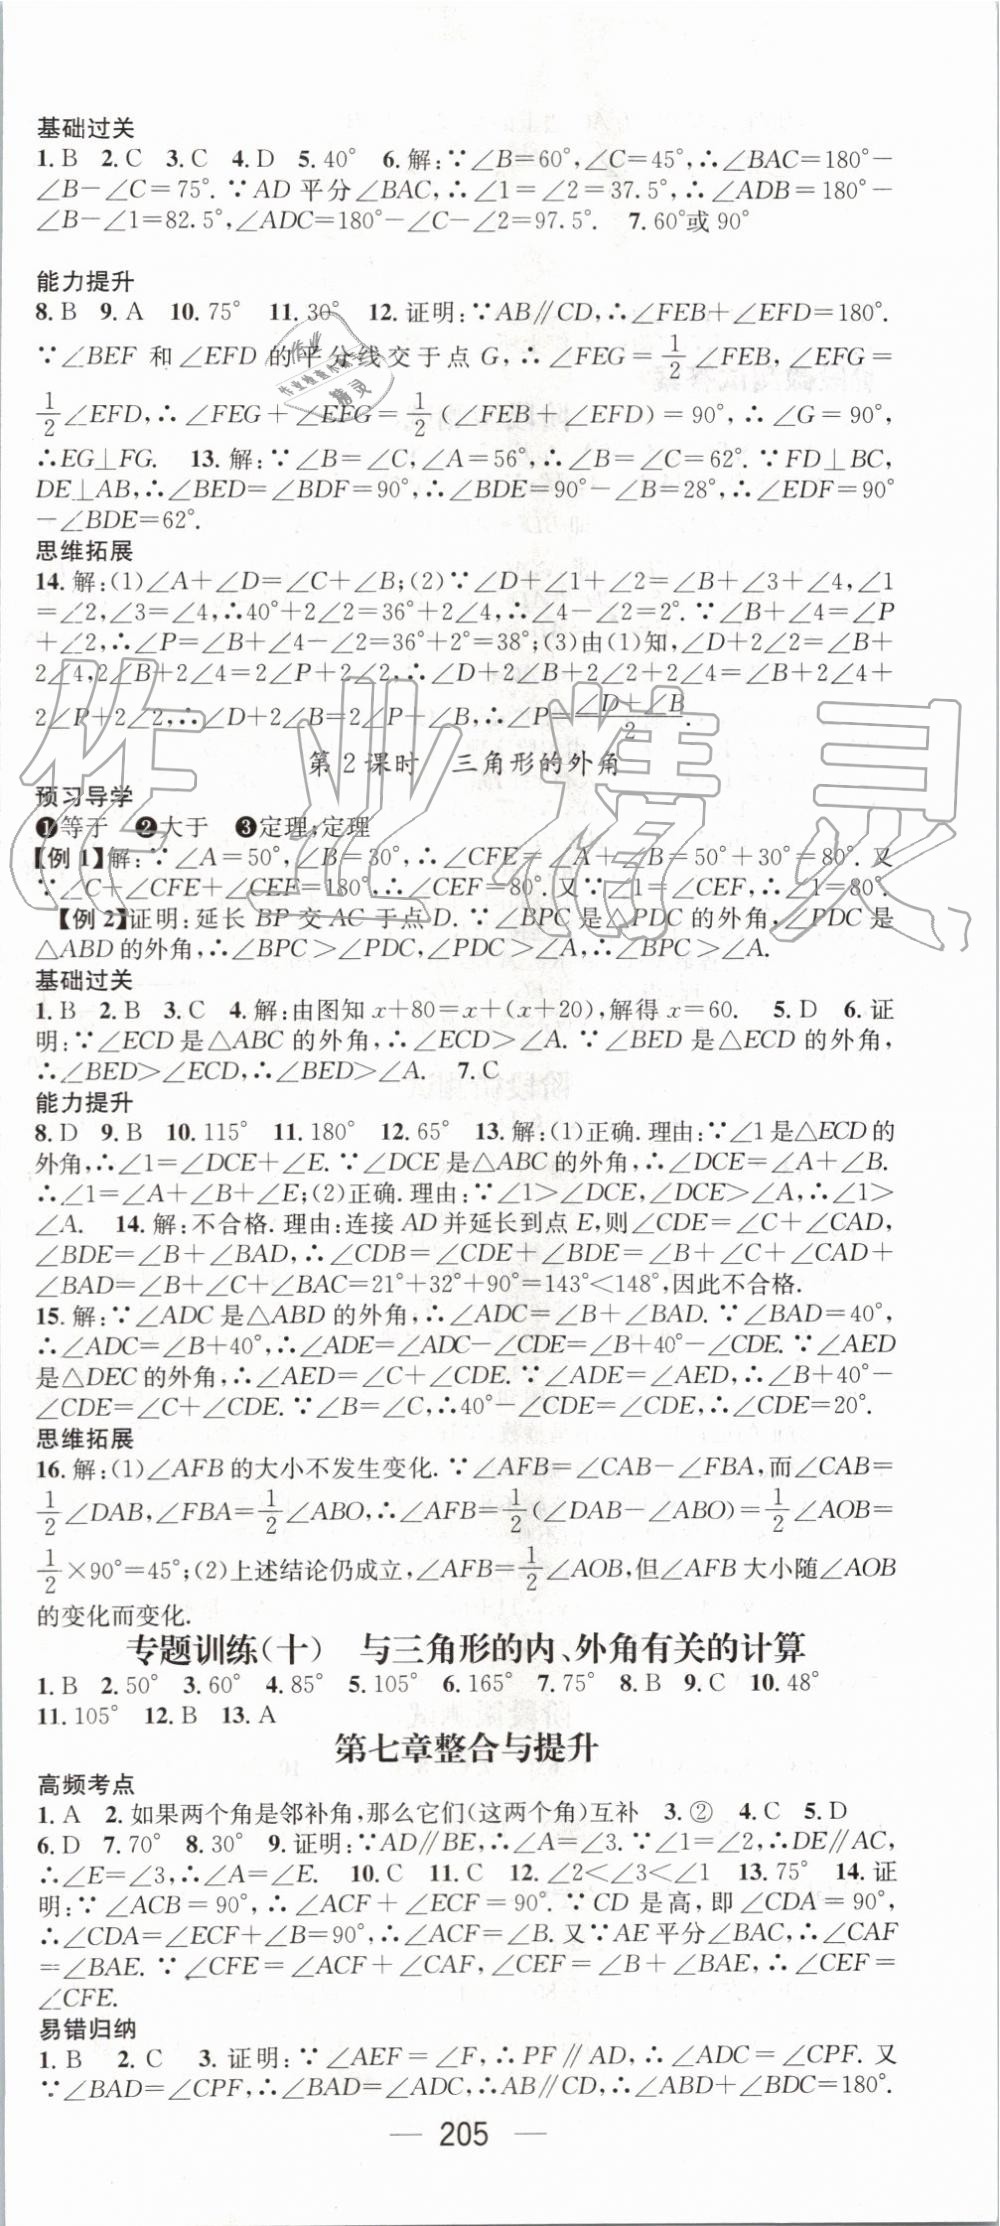 基础过关
1. B 2. C 3. C 4. D 5. 40° 6. 解:∵∠B=60°,∠C=45°,∴∠BAC=180°−
∠B−∠C=75°. ∵AD 平分∠BAC,∴∠1=∠2=37.5°,∴∠ADB=180°−
∠B−∠1=82.5°,∠ADC=180°−∠C−∠2=97.5°. 7. 60°或 90°
能力提升
8. B 9. A 10. 75° 11. 30° 12. 证明:∵AB∥CD,∴∠FEB+∠EFD=180°.
∵∠BEF 和∠EFD 的平分线交于点 G,∴∠FEG=1/2∠FEB,∠EFG=
1/2∠EFD,∴∠FEG+∠EFG=1/2(∠FEB+∠EFD)=90°,∴∠G=90°,
∴EG⊥FG. 13. 解:∵∠B=∠C,∠A=56°,∴∠B=∠C=62°. ∵FD⊥BC,
DE⊥AB,∴∠BED=∠BDF=90°,∴∠BDE=90°−∠B=28°,∴∠EDF=90°
−∠BDE=62°.
思维拓展
14. 解:(1)∠A+∠D=∠C+∠B;(2)∵∠D+∠1+∠2=∠B+∠3+∠4,∠1
=∠2,∠3=∠4,∴40°+2∠2=36°+2∠4,∴∠4−∠2=2°. ∵∠B+∠4=∠P
+∠2,∴∠P=∠B+∠4−∠2=36°+2°=38°;(3)由(1)知,∠D+2∠2=∠B+
2∠4,2∠B+2∠4=2∠P+2∠2,∴∠D+2∠B+2∠2+2∠4=∠B+2∠4+
2∠P+2∠2,∴∠D+2∠B=2∠P+∠B,∴∠P=(∠D+∠B)/2.
第 2 课时 三角形的外角
预习导学
❶等于 ❷大于 ❸定理;定理
【例 1】解:∵∠A=50°,∠B=30°,∴∠CFE=∠A+∠B=50°+30°=80°. 又
∵∠C+∠CFE+∠CEF=180°,∴∠CEF=80°. 又∵∠1=∠CEF,∴∠1=80°.
【例 2】证明:延长 BP 交 AC 于点 D. ∵∠BPC 是△PDC 的外角,∠PDC 是
△ABD 的外角,∴∠BPC>∠PDC,∠PDC>∠A,∴∠BPC>∠A.
基础过关
1. B 2. B 3. C 4. 解:由图知 x+80=x+(x+20),解得 x=60. 5. D 6. 证
明:∵∠ECD 是△ABC 的外角,∴∠ECD>∠A. ∵∠BED 是△ECD 的外角,
∴∠BED>∠ECD,∴∠BED>∠A. 7. C
能力提升
8. D 9. B 10. 115° 11. 180° 12. 65° 13. 解:(1)正确. 理由:∵∠1 是△ECD 的
外角,∴∠1=∠DCE+∠E. ∵∠DCE 是△ABC 的外角,∴∠DCE=∠A+∠B.
∴∠1=∠A+∠B+∠E;(2)正确. 理由:∵∠1>∠DCE,∠DCE>∠A,∴∠1>
∠A. 14. 解:不合格. 理由:连接 AD 并延长到点 E,则∠CDE=∠C+∠CAD,
∠BDE=∠B+∠BAD,∴∠CDB=∠CDE+∠BDE=∠B+∠C+∠CAD+
∠BAD=∠B+∠C+∠BAC=21°+32°+90°=143°<148°,因此不合格.
15. 解:∵∠ADC 是△ABD 的外角,∴∠ADC=∠B+∠BAD. ∵∠BAD=40°,
∴∠ADC=∠B+40°,∴∠ADE=∠ADC−∠CDE=∠B+40°−∠CDE. ∵∠AED
是△DEC 的外角,∴∠AED=∠C+∠CDE. ∵∠ADE=∠AED,∴∠B+40°−
∠CDE=∠C+∠CDE. ∵∠B=∠C,∴40°−∠CDE=∠CDE,∴∠CDE=20°.
思维拓展
16. 解:(1)∠AFB 的大小不发生变化. ∵∠AFB=∠CAB−∠FBA,而∠CAB=
1/2∠DAB,∠FBA=1/2∠ABO,∴∠AFB=1/2(∠DAB−∠ABO)=1/2∠AOB=
1/2×90°=45°;(2)上述结论仍成立,∠AFB=1/2∠AOB,但∠AFB 大小随∠AOB
的变化而变化.
专题训练(十) 与三角形的内、外角有关的计算
1. B 2. 50° 3. 60° 4. 85° 5. 105° 6. 165° 7. 75° 8. B 9. C 10. 48°
11. 105° 12. B 13. A
第七章整合与提升
高频考点
1. A 2. 如果两个角是邻补角,那么它们(这两个角)互补 3. ② 4. C 5. D
6. D 7. 70° 8. 30° 9. 证明:∵AD∥BE,∴∠A=∠3. ∵∠1=∠2,∴DE∥AC,
∴∠E=∠3,∴∠A=∠E. 10. C 11. C 12. ∠2<∠3<∠1 13. 75° 14. 证
明:∵∠ACB=90°,∴∠ACF+∠ECF=90°. ∵CD 是高,即∠CDA=90°,
∴∠CDA=∠ECF+∠B=90°,∴∠ACF=∠B. 又∵AE 平分∠BAC,∴∠CAF
=∠BAE. ∵∠CFE=∠ACF+∠CAF,∠CEF=∠B+∠BAE,∴∠CEF=
∠CFE.
易错归纳
1. B 2. C 3. 证明:∵∠AEF=∠F,∴PF∥AD,∴∠ADC=∠CPF. 又
∵∠BAD=∠CPF,∴∠BAD=∠ADC,∴AB∥CD,∴∠ABD+∠BDC=180°.
— 205 —
作业精灵